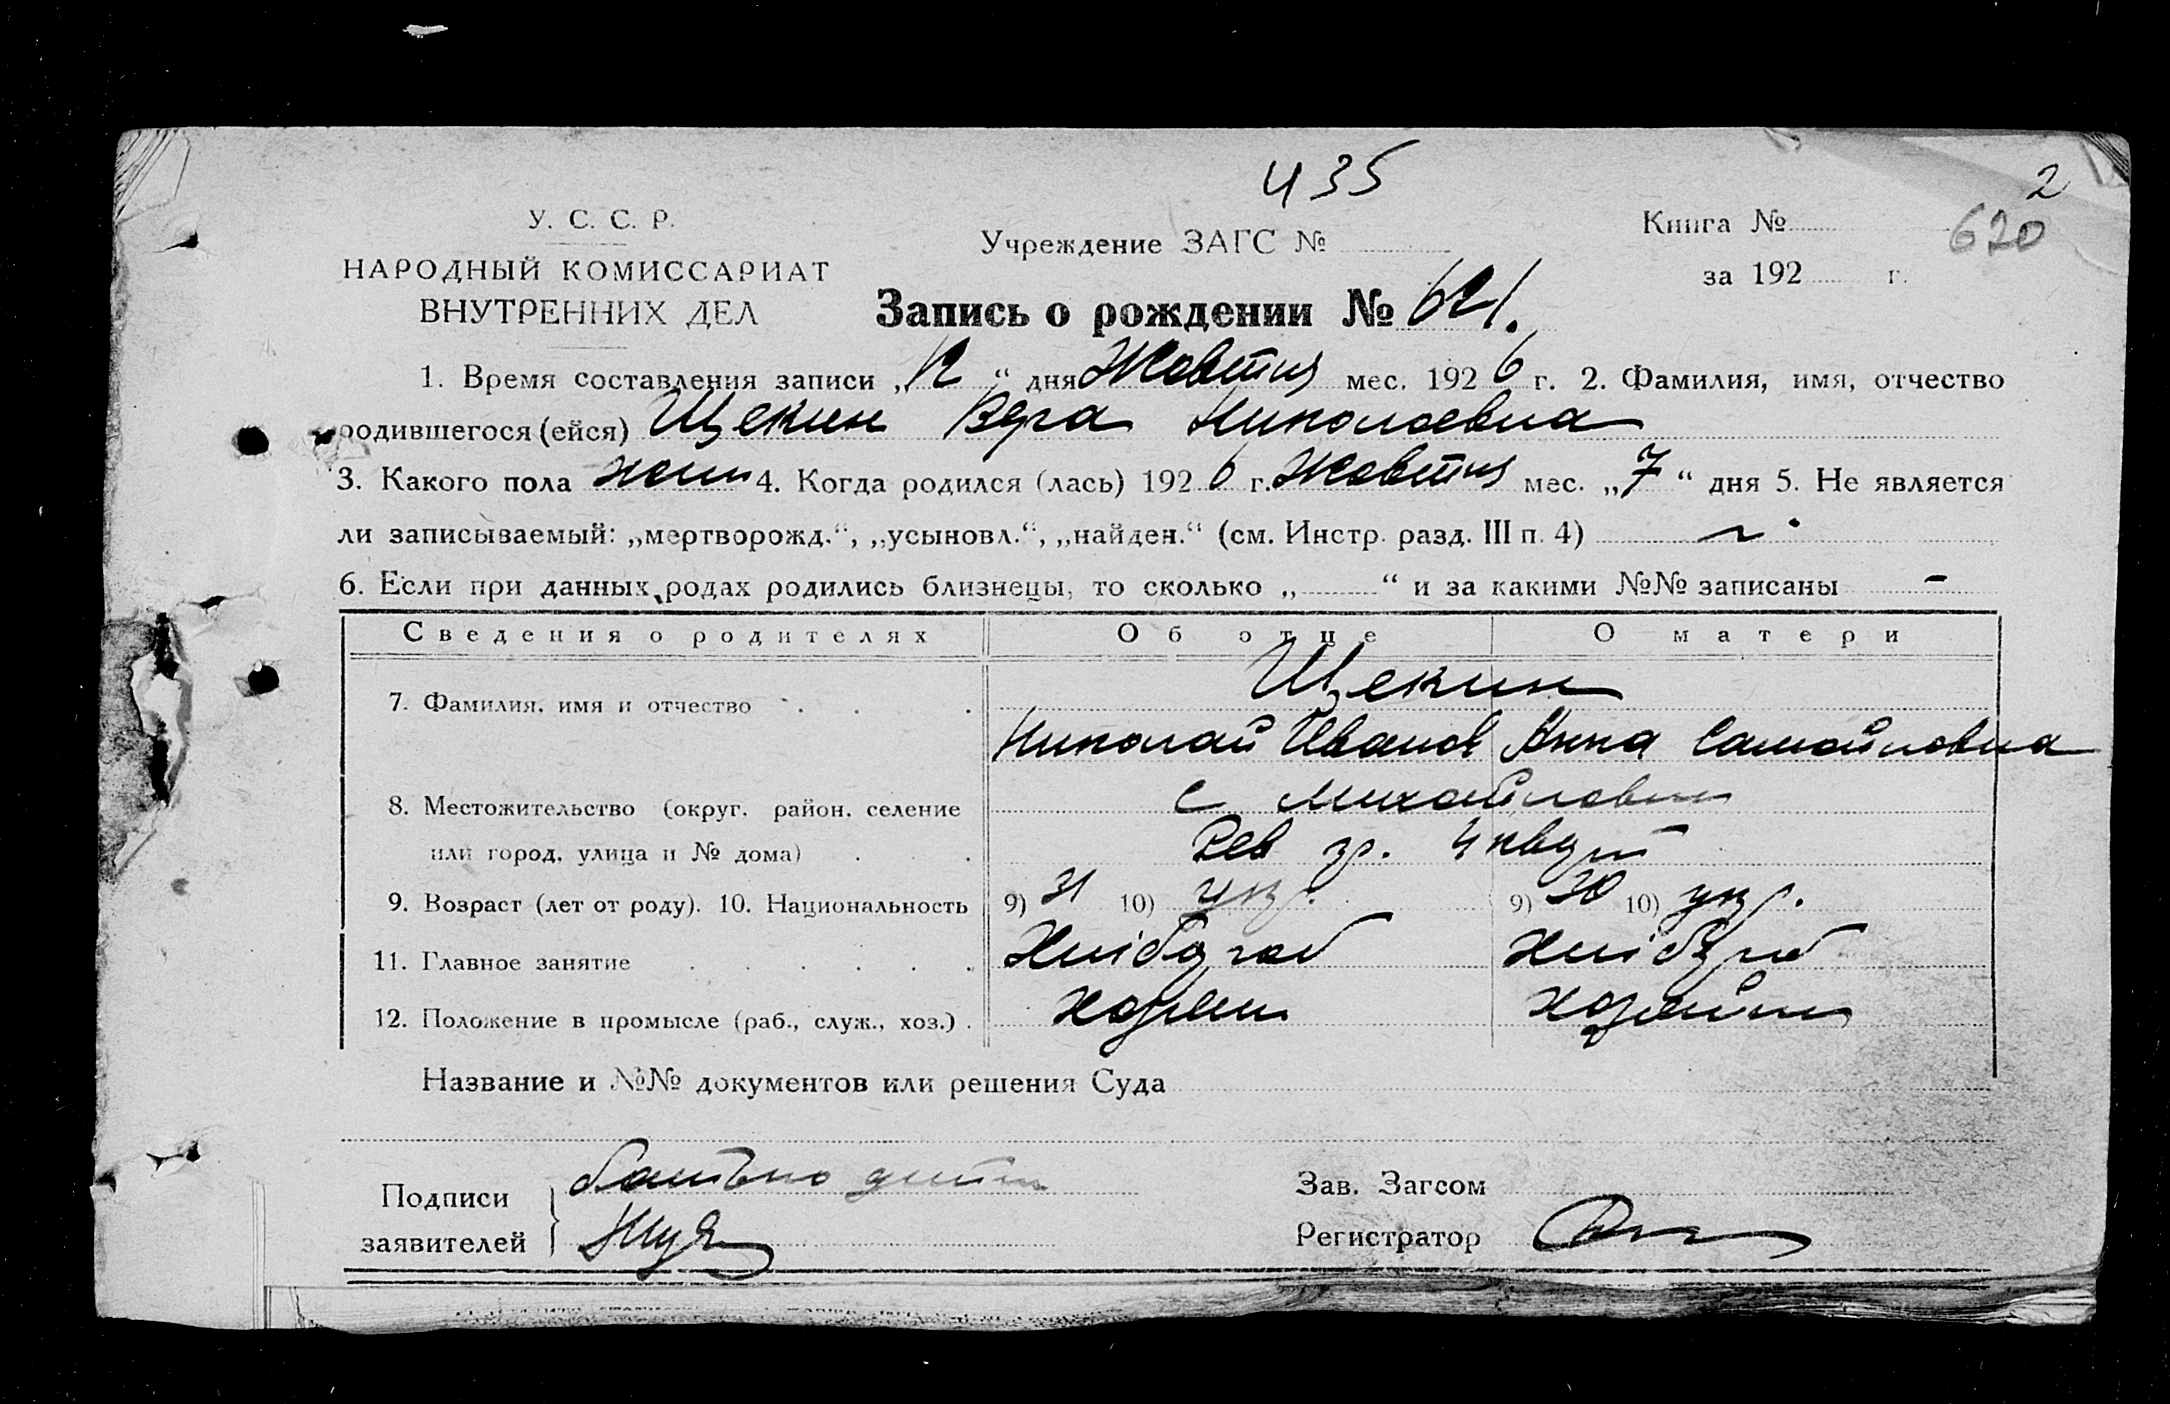 435
2
У. С. С. Р.
Учреждение ЗАГС №
Книга №
620
НАРОДНЫЙ КОМИССАРИАТ
ВНУТРЕННИХ ДЕЛ
за 192 г.
Запись о рождении № 621.
1. Время составления записи „12“ дня Жовтня мес. 1926 г. 2. Фамилия, имя, отчество
родившегося (ейся) Щекин Вера Николаевна
3. Какого пола жен 4. Когда родился (лась) 1926 г. Жовтня мес. „7“ дня 5. Не является
ли записываемый: „мертворожд.“, „усыновл.“, „найден.“ (см. Инстр. разд. III п. 4)
6. Если при данных родах родились близнецы, то сколько „ “ и за какими №№ записаны -
Сведения о родителях Об отце О матери
7. Фамилия, имя и отчество Щекин
Николай Иванов Анна Самойловна
8. Местожительство (округ, район, селение с Михайловки
или город, улица и № дома)
9. Возраст (лет от роду). 10. Национальность 9) 31 10) укр. 9) 30 10) укр.
11. Главное занятие Хлібороб Хлібороб
12. Положение в промысле (раб., служ., хоз.)
Название и №№ документов или решения Суда
Подписи заявителей
батько дитини
Зав. Загсом
Регистратор